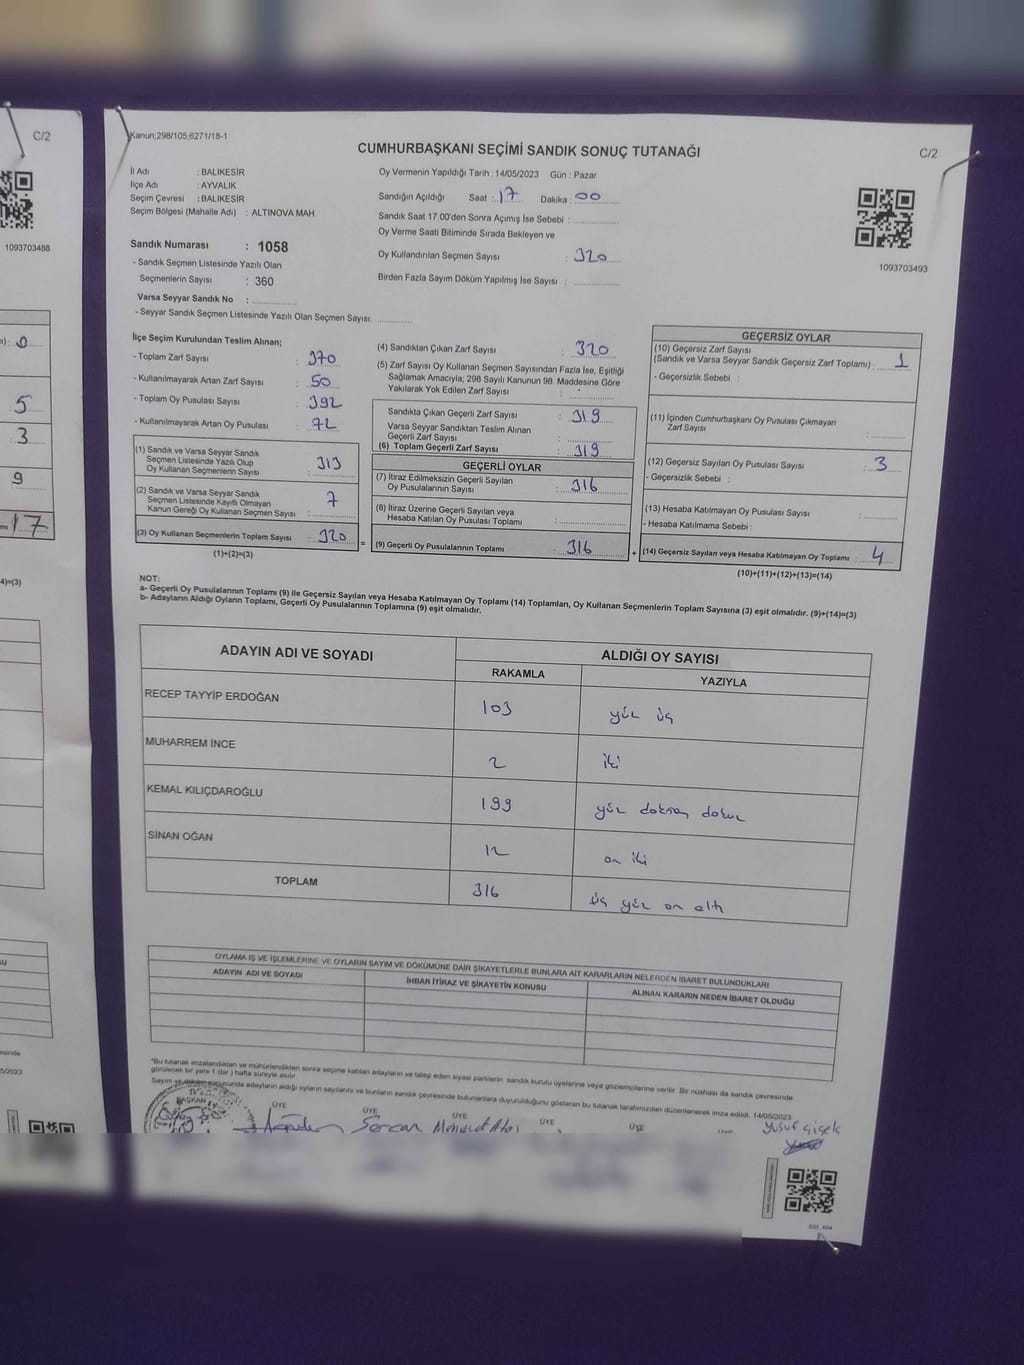 C/2
1093703488
5
3
9
17
4)=(3)
Kanun;298/105;6271/18-1
CUMHURBAŞKANI SEÇİMİ SANDIK SONUÇ TUTANAĞI
C/2
İl Adı : BALIKESİR
İlçe Adı : AYVALIK
Seçim Çevresi : BALIKESİR
Seçim Bölgesi (Mahalle Adı) : ALTINOVA MAH.
Oy Vermenin Yapıldığı Tarih :14/05/2023 Gün : Pazar
Sandığın Açıldığı Saat :17 Dakika :00
Sandık Saat 17:00'den Sonra Açımış İse Sebebi :
Oy Verme Saati Bitiminde Sırada Bekleyen ve
Oy Kullandırılan Seçmen Sayısı : 320
Birden Fazla Sayım Döküm Yapılmış İse Sayısı :
1093703493
Sandık Numarası : 1058
- Sandık Seçmen Listesinde Yazılı Olan
Seçmenlerin Sayısı : 360
Varsa Seyyar Sandık No :
- Seyyar Sandık Seçmen Listesinde Yazılı Olan Seçmen Sayısı:
İlçe Seçim Kurulundan Teslim Alınan;
- Toplam Zarf Sayısı : 370
- Kullanılmayarak Artan Zarf Sayısı : 50
- Toplam Oy Pusulası Sayısı : 392
- Kullanılmayarak Artan Oy Pusulası : 72
(1) Sandık ve Varsa Seyyar Sandık
Seçmen Listesinde Yazılı Olup
Oy Kullanan Seçmenlerin Sayısı : 313
(2) Sandık ve Varsa Seyyar Sandık
Seçmen Listesinde Kayıtlı Olmayan
Kanun Gereği Oy Kullanan Seçmen Sayısı : 7
(3) Oy Kullanan Seçmenlerin Toplam Sayısı : 320
(1)+(2)=(3)
=
(4) Sandıktan Çıkan Zarf Sayısı : 320
(5) Zarf Sayısı Oy Kullanan Seçmen Sayısından Fazla İse, Eşitliği
Sağlamak Amacıyla; 298 Sayılı Kanunun 98. Maddesine Göre
Yakılarak Yok Edilen Zarf Sayısı :
Sandıkta Çıkan Geçerli Zarf Sayısı : 319
Varsa Seyyar Sandıktan Teslim Alınan
Geçerli Zarf Sayısı :
(6) Toplam Geçerli Zarf Sayısı : 319
GEÇERLİ OYLAR
(7) İtiraz Edilmeksizin Geçerli Sayılan
Oy Pusulalarının Sayısı : 316
(8) İtiraz Üzerine Geçerli Sayılan veya
Hesaba Katılan Oy Pusulası Toplamı :
(9) Geçerli Oy Pusulalarının Toplamı : 316
+
GEÇERSİZ OYLAR
(10) Geçersiz Zarf Sayısı
(Sandık ve Varsa Seyyar Sandık Geçersiz Zarf Toplamı) : 1
- Geçersizlik Sebebi :
(11) İçinden Cumhurbaşkanı Oy Pusulası Çıkmayan
Zarf Sayısı :
(12) Geçersiz Sayılan Oy Pusulası Sayısı : 3
- Geçersizlik Sebebi :
(13) Hesaba Katılmayan Oy Pusulası Sayısı :
- Hesaba Katılmama Sebebi :
(14) Geçersiz Sayılan veya Hesaba Katılmayan Oy Toplamı : 4
(10)+(11)+(12)+(13)=(14)
NOT:
a- Geçerli Oy Pusulalarının Toplamı (9) ile Geçersiz Sayılan veya Hesaba Katılmayan Oy Toplamı (14) Toplamları, Oy Kullanan Seçmenlerin Toplam Sayısına (3) eşit olmalıdır. (9)+(14)=(3)
b- Adayların Aldığı Oyların Toplamı, Geçerli Oy Pusulalarının Toplamına (9) eşit olmalıdır.
ADAYIN ADI VE SOYADI ALDIĞI OY SAYISI
RAKAMLA YAZIYLA
RECEP TAYYİP ERDOĞAN 103 yüz üç
MUHARREM İNCE 2 iki
KEMAL KILIÇDAROĞLU 199 yüz doksan dokuz
SİNAN OĞAN 12 on iki
TOPLAM 316 üç yüz on altı
OYLAMA İŞ VE İŞLEMLERİNE VE OYLARIN SAYIM VE DÖKÜMÜNE DAİR ŞİKAYETLERLE BUNLARA AİT KARARLARIN NELERDEN İBARET BULUNDUKLARI
ADAYIN ADI VE SOYADI İHBAR İTİRAZ VE ŞİKAYETİN KONUSU ALINAN KARARIN NEDEN İBARET OLDUĞU
*Bu tutanak imzalandıktan ve mühürlendikten sonra seçime katılan adayların ve talep eden siyasi partilerin sandık kurulu üyelerine veya gözlemcilerine verilir. Bir nüshası da sandık çevresinde
görülecek bir yere 1 (bir) hafta süreyle asılır.
Sayım ve döküm sonucunda adayların aldığı oyların sayılarını ve bunların sandık çevresinde bulunanlara duyurulduğunu gösteren bu tutanak tarafımızdan düzenlenerek imza edildi. 14/05/2023
BAŞKAN ÜYE ÜYE ÜYE ÜYE ÜYE ÜYE
Sercan Mehmet Yusuf Çiçek